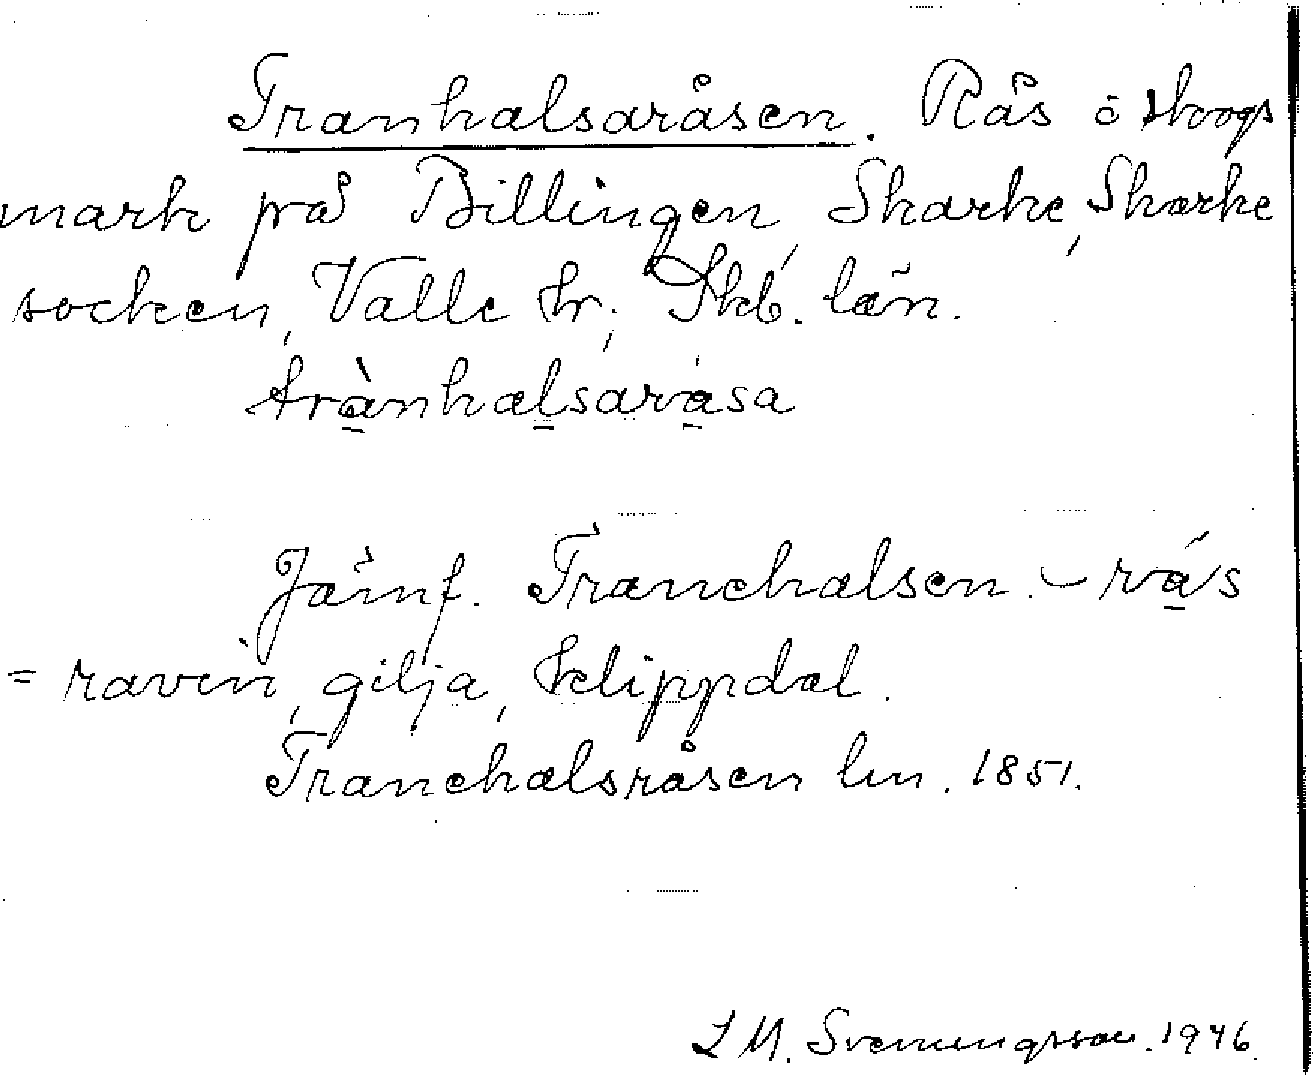 Tranhalsaråsen. Rås i skogs
mark på Billingen, Skarke, Skarke
socken, Valle hr; Skb. län.
trànhalsaråsa
Jämf. Tranehalsen. – rås
= ravin, gilja, klippdal.
Tranehalsråsen lm. 1851.
L M. Svenungsson. 1946.